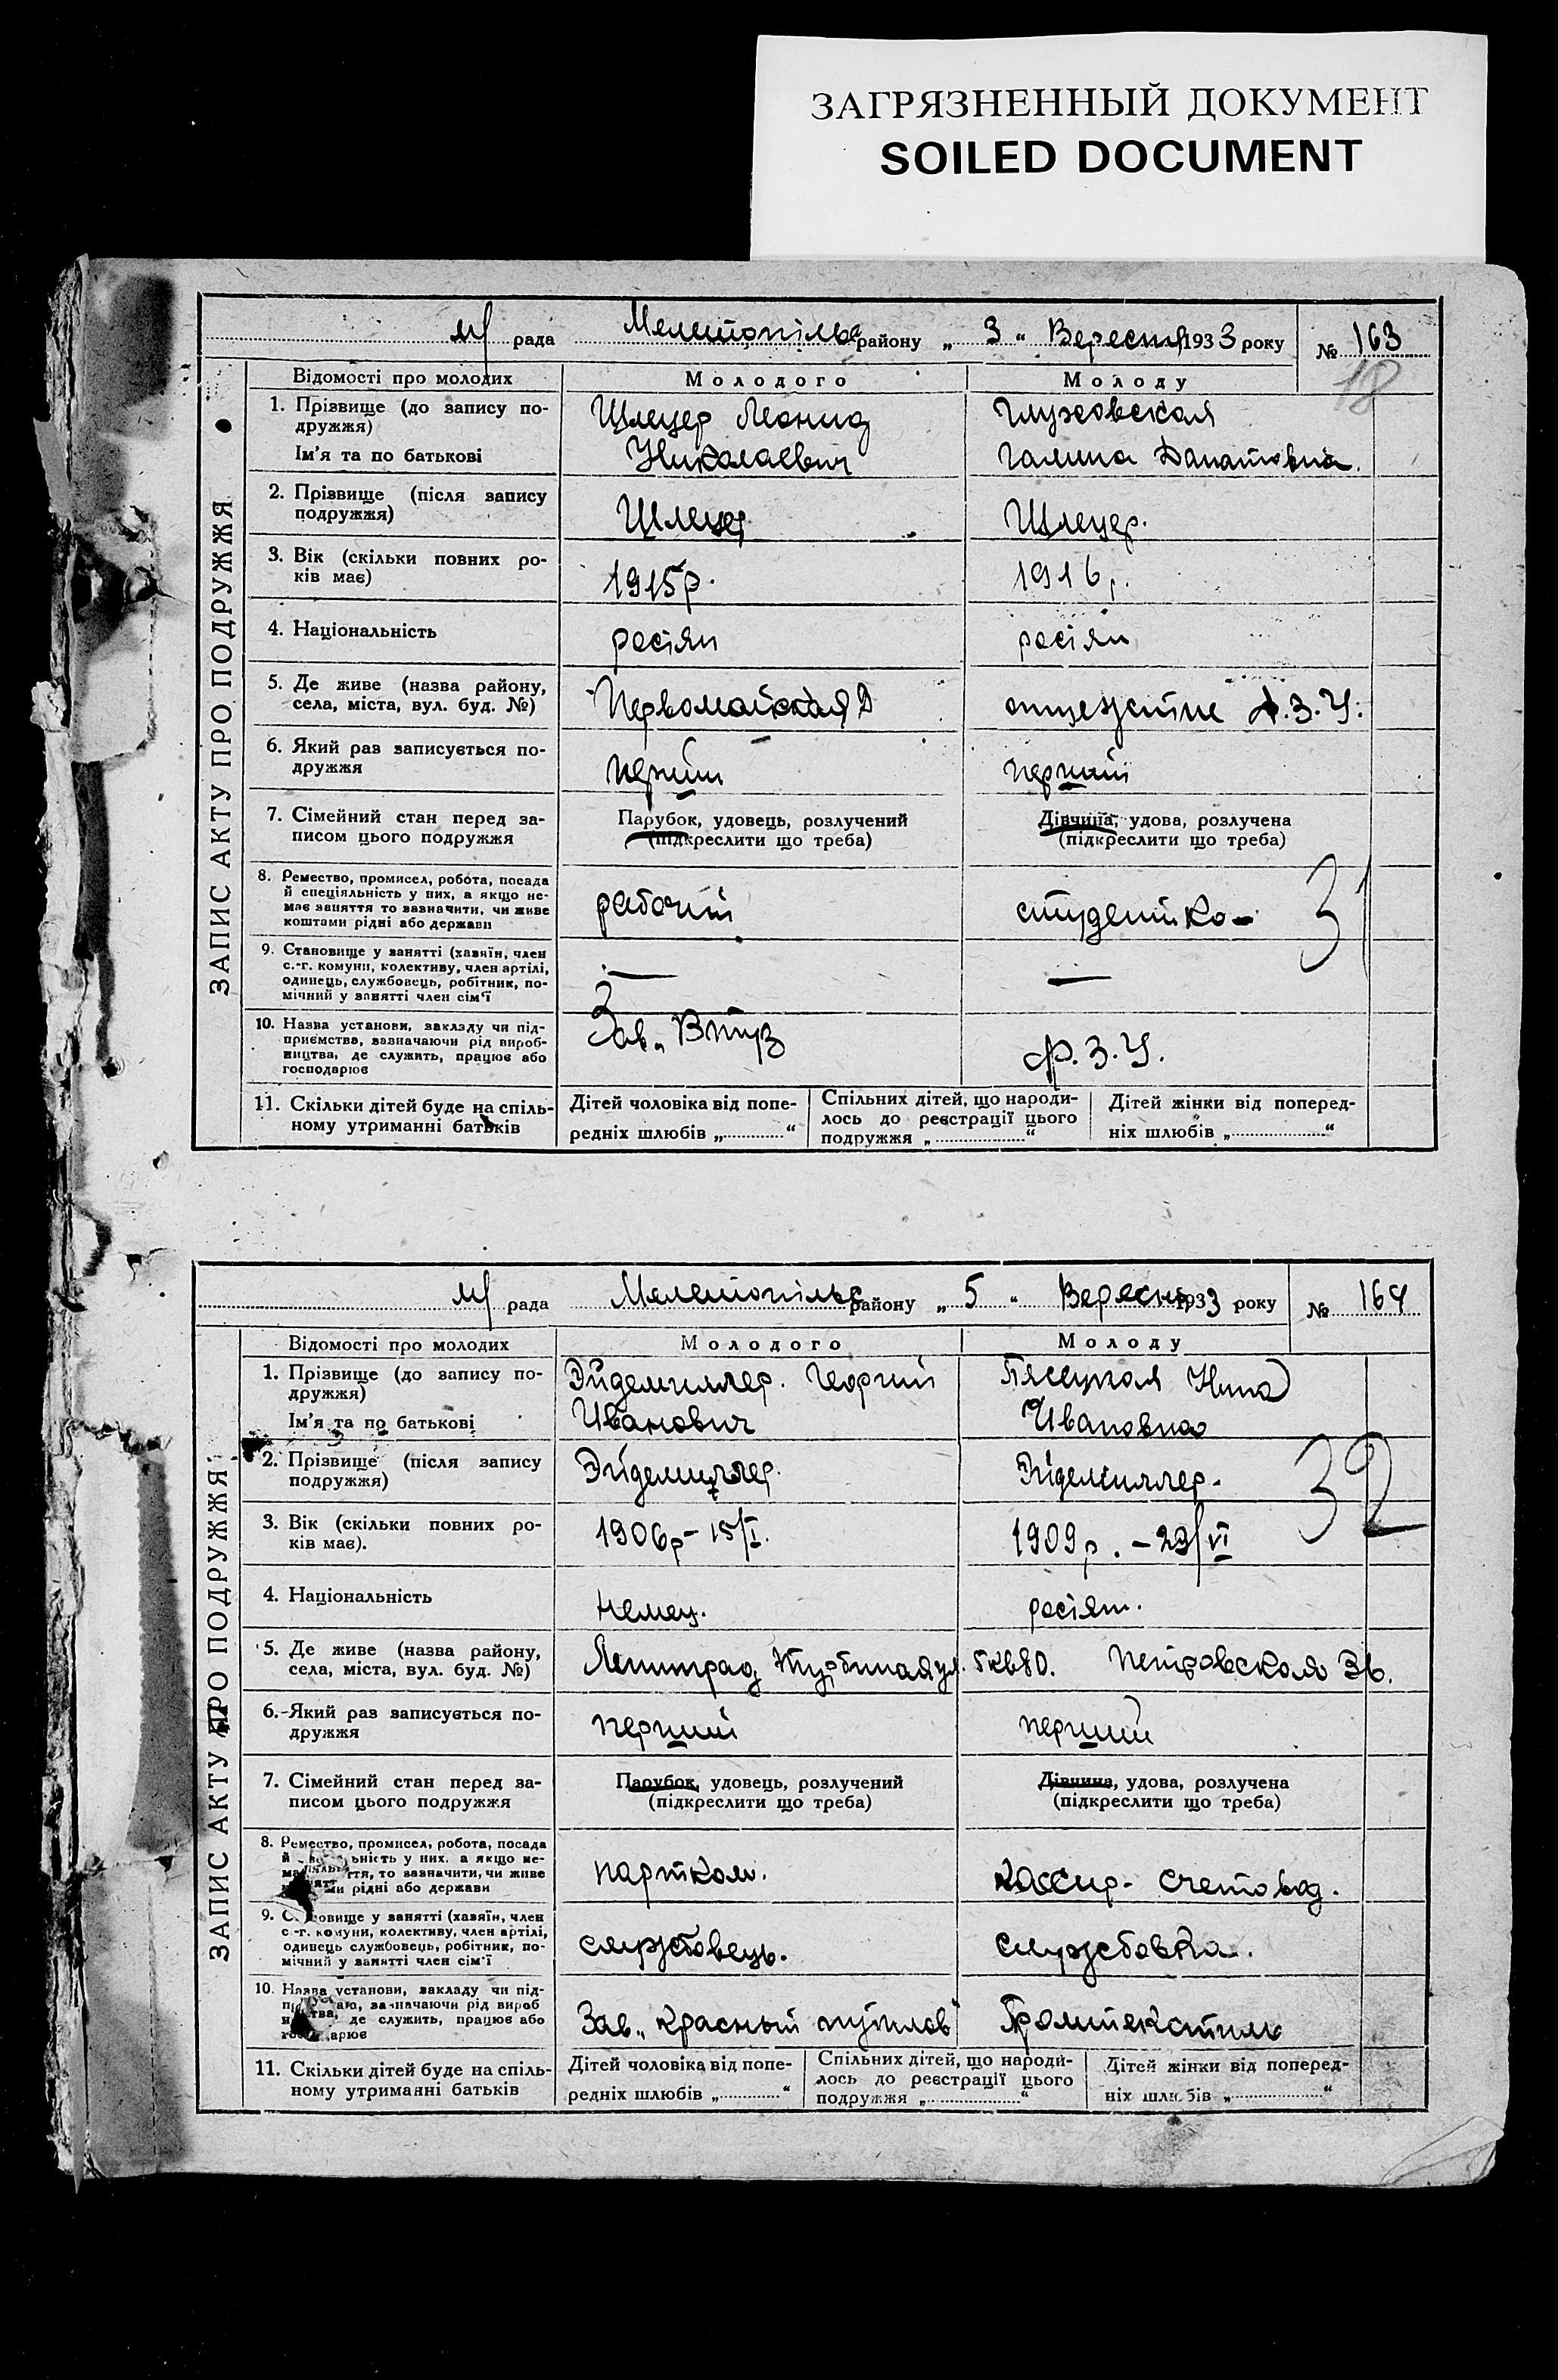 ЗАГРЯЗНЕННЫЙ ДОКУМЕНТ
SOILED DOCUMENT
рада Мелитопільс району „ 3 “ Вересня 1933 року № 163
18
ЗАПИС АКТУ ПРО ПОДРУЖЖЯ
Відомості про молодих Молодого Молоду
1. Прізвище (до запису по-
дружжя)
Ім'я та по батькові
Шлецер Леонид
Николаевич
Глуховская
Галина Данатовна.
2. Прізвище (після запису
подружжя)
Шлецер
Шлецер.
3. Вік (скільки повних ро-
ків має)
1915р.
1916р.
4. Національність
росіян
росіян
5. Де живе (назва району,
села, міста, вул. буд. №)
Первомайская
Ф.З.У.
6. Який раз записується по-
дружжя
перший
перший
7. Сімейний стан перед за-
писом цього подружжя
Парубок, удовець, розлучений
(підкреслити що треба)
Дівчина, удова, розлучена
(підкреслити що треба)
8. Ремество, промисел, робота, посада
й спеціяльність у них, а якщо не-
має заняття то зазначити, чи живе
коштами рідні або держави
рабочий
студентка
31
9. Становище у занятті (хазяїн, член
с.-г. комуни, колективу, член артілі,
одинець, службовець, робітник, по-
мічний у занятті член сім'ї
—
—
10. Назва установи, закладу чи під-
приємства, зазначаючи рід вироб-
ництва, де служить, працює або
господарює
Зав.
Ф.З.У.
11. Скільки дітей буде на спіль-
ному утриманні батьків
Дітей чоловіка від попе-
редніх шлюбів „ “
Спільних дітей, що народи-
лось до реєстрації цього
подружжя „ “
Дітей жінки від поперед-
ніх шлюбів „ “
рада Мелитопільс району „ 5 “ Вересня 1933 року № 164
ЗАПИС АКТУ ПРО ПОДРУЖЖЯ
Відомості про молодих Молодого Молоду
1. Прізвище (до запису по-
дружжя)
Ім'я та по батькові
Эйдемиллер. Георгий
Иванович
Пясецкая Нина
Ивановна
2. Прізвище (після запису
подружжя)
Эйдемиллер.
Эйдемиллер.
32
3. Вік (скільки повних ро-
ків має).
1906р – 15/I.
1909р. – 29/VI
4. Національність
немец.
росіян.
5. Де живе (назва району,
села, міста, вул. буд. №)
Ленинград Турбинная ул. 5 кв 80.
Петровская 36.
6. Який раз записується по-
дружжя
перший
перший
7. Сімейний стан перед за-
писом цього подружжя
Парубок, удовець, розлучений
(підкреслити що треба)
Дівчина, удова, розлучена
(підкреслити що треба)
8. Ремество, промисел, робота, посада
ьність у них, а якщо не-
ття, то зазначити, чи живе
ми рідні або держави
партком.
кассир - счетовод.
9. С овище у занятті (хазяїн, член
с.-г. комуни, колективу, член артілі,
одинець службовець, робітник, по-
мічний у занятті член сім'ї
службовець.
службовка.
10. Назва установи, закладу чи під-
зазначаючи рід вироб
де служить, працює або
арює
Зав. „Красный путилов“
Промтекстиль
11. Скільки дітей буде на спіль-
ному утриманні батьків
Дітей чоловіка від попе-
редніх шлюбів „ “
Спільних дітей, що народи-
лось до реєстрації цього
подружжя „ “
Дітей жінки від поперед-
ніх шлюбів „ “